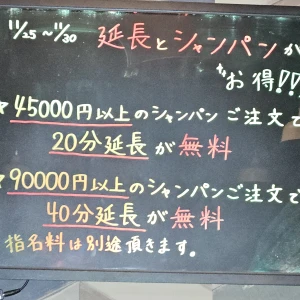 11/25~11/30 延長とシャンパンが
お得!!
★45000円以上のシャンパンご注文で
20分延長が無料
★90000円以上のシャンパンご注文で
40分延長が無料
指名料は別途頂きます。